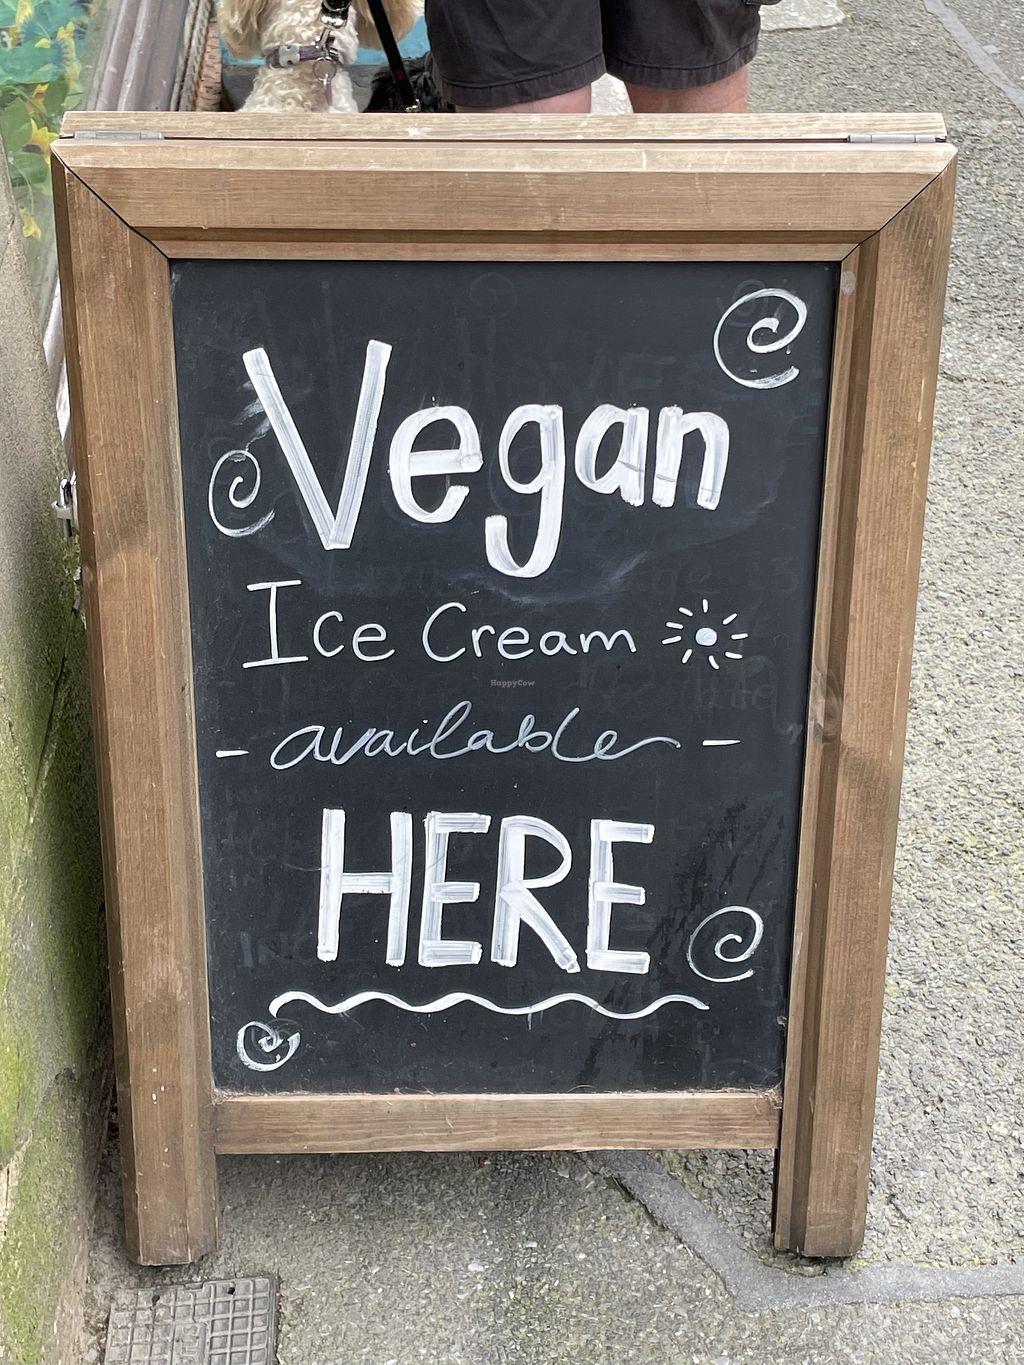 Vegan
Ice Cream
HappyCow
- available -
HERE